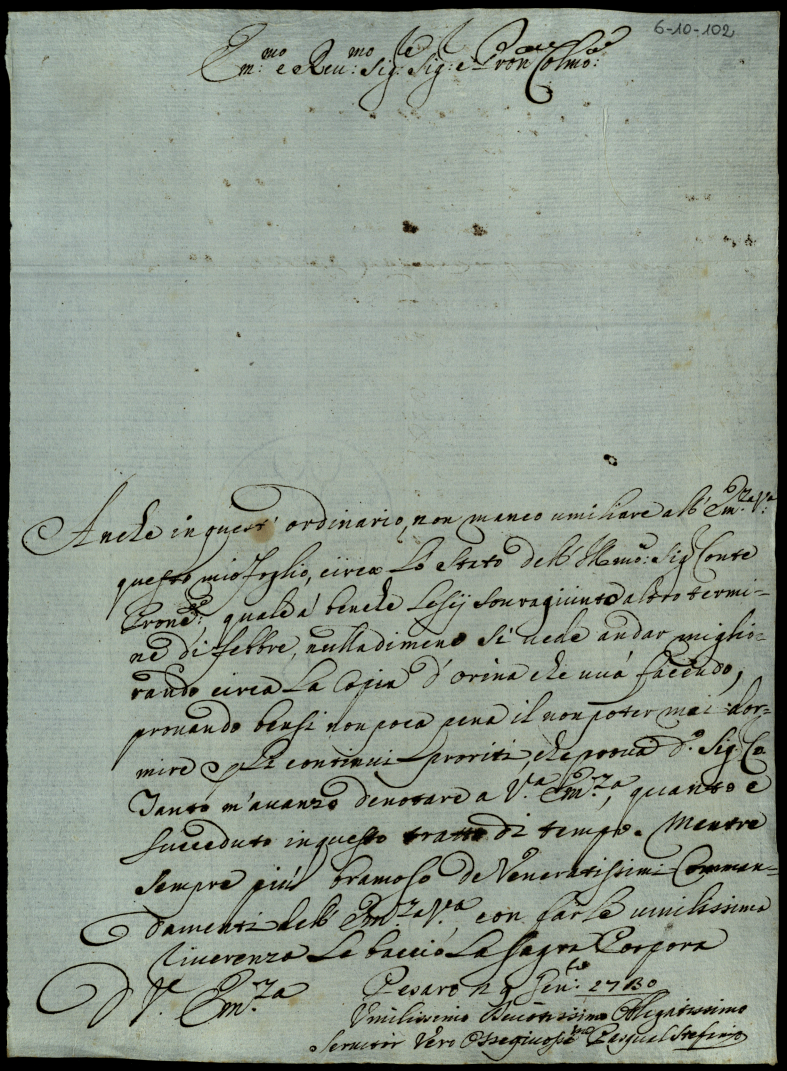 6-10-102
Em.mo e Reu.mo Sig.re Sig.r e Pron Colmo:
Anche in quest' ordinario, non manco umiliare all' Em.za V.a
questo mio foglio, circa Lo Stato dell' Sig.r Conte
Prone: quale à benche Lesij souragiunto altro termi=
ne di febbre, nulladimeno si uede andar miglio=
rando circa La Copia d'orina che uuà facendo,
prouando bensi non poca pena il non poter mai dor=
mire Li continui proriti, che proua d.o Sig. Co
Tanto m'auanzo denotare a V.a Em.za, quanto è
succeduto in questo tratto di tempo. Mentre
sempre più bramoso de Veneratissimi Comman=
damenti dell' Em.za V.a con farle umilissima
riuerenza Le baccio La Sagra Porpora
D V. Em.za Pesaro Gen.
Vmilissimo Obligatissimo
Seruitor Vero Pasqual Stefani